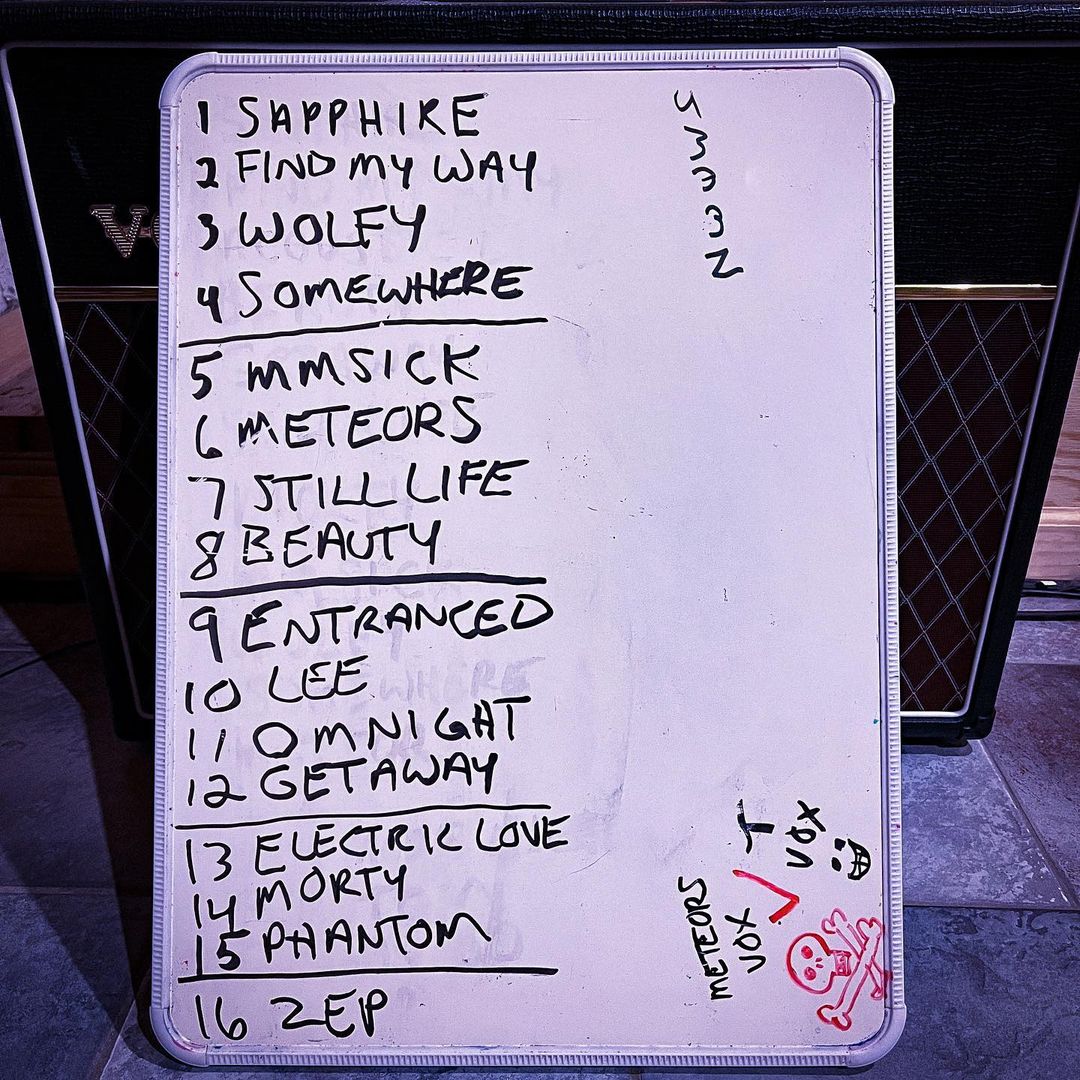 1 SAPPHIRE
2 FIND MY WAY
3 WOLFY
4 SOMEWHERE
5 MMSICK
6 METEORS
7 STILL LIFE
8 BEAUTY
9 ENTRANCED
10 LEE
11 OMNIGHT
12 GETAWAY
13 ELECTRIC LOVE
14 MORTY
15 PHANTOM
16 ZEP
T
VOX
METEORS
VOX